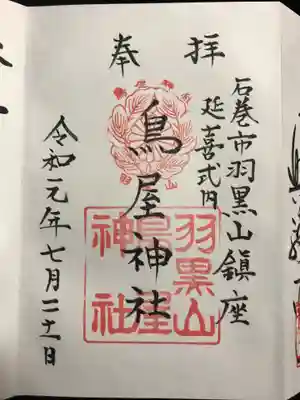 奉拝
石巻市羽黒山鎮座
延喜式内
鳥屋神社
羽黒山
鳥屋
神社
令和元年七月二十一日